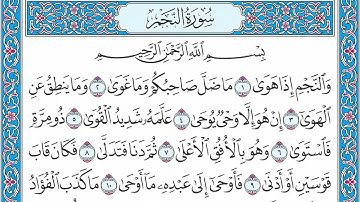 سُورَةُ النَّجْمِ
بِسْمِ اللَّهِ الرَّحْمَٰنِ الرَّحِيمِ
وَالنَّجْمِ إِذَا هَوَىٰ ١ مَا ضَلَّ صَاحِبُكُمْ وَمَا غَوَىٰ ٢ وَمَا يَنطِقُ عَنِ
الْهَوَىٰ ٣ إِنْ هُوَ إِلَّا وَحْيٌ يُوحَىٰ ٤ عَلَّمَهُ شَدِيدُ الْقُوَىٰ ٥ ذُو مِرَّةٍ
فَاسْتَوَىٰ ٦ وَهُوَ بِالْأُفُقِ الْأَعْلَىٰ ٧ ثُمَّ دَنَا فَتَدَلَّىٰ ٨ فَكَانَ قَابَ
قَوْسَيْنِ أَوْ أَدْنَىٰ ٩ فَأَوْحَىٰ إِلَىٰ عَبْدِهِ مَا أَوْحَىٰ ١٠ مَا كَذَبَ الْفُؤَادُ